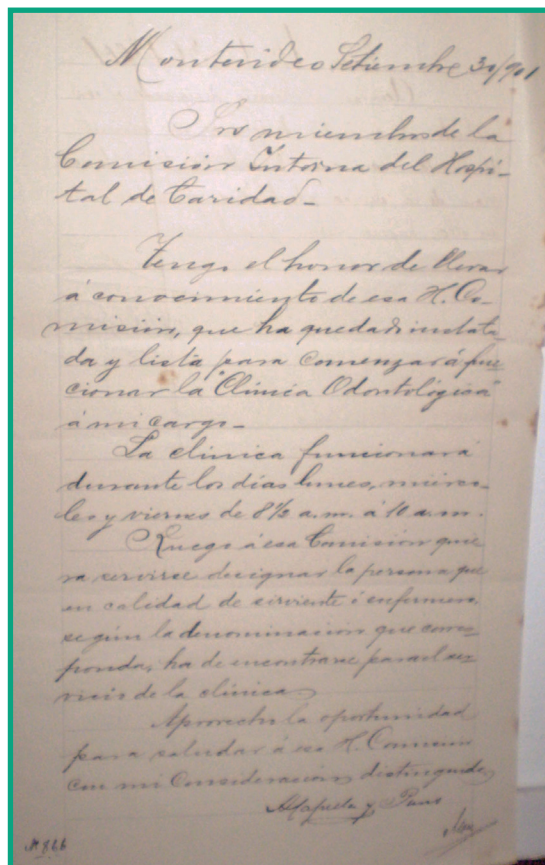 Montevideo Setiembre 30/901
Sres miembros de la
Comisión Interna del Hospi-
tal de Caridad_
Tengo el honor de llevar
á conocimiento de esa H. Co-
misión, que ha quedado instala-
da y lista para comenzar á fun-
cionar la "Clínica Odontológica"
á mi cargo_
La clínica funcionará
durante los días lunes, miérco-
les y viernes de 8½ a.m. á 10 a.m.
Ruego á esa Comisión quie-
ra servirse designar la persona que
en calidad de sirviente ó enfermero,
según la denominación que corres-
ponda, ha de encontrarse para el ser-
vicio de la clínica
Aprovecho la oportunidad
para saludar á esa H. Comisión
con mi consideración distinguida
y